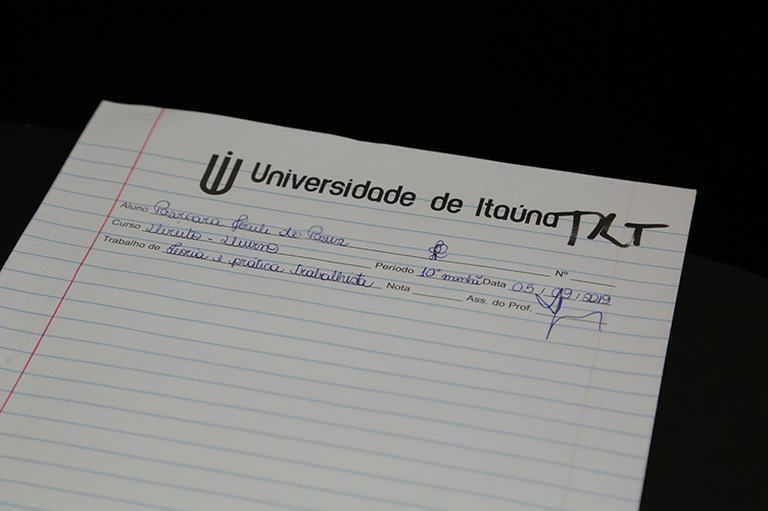 Universidade de Itaúna TRT
Aluno Barbara Ferili de Paiva Nº
Curso Direito - Diurno Período 10º manhã Data 05/09/2019
Trabalho de Teoria e prática Trabalhista Nota Ass. do Prof.